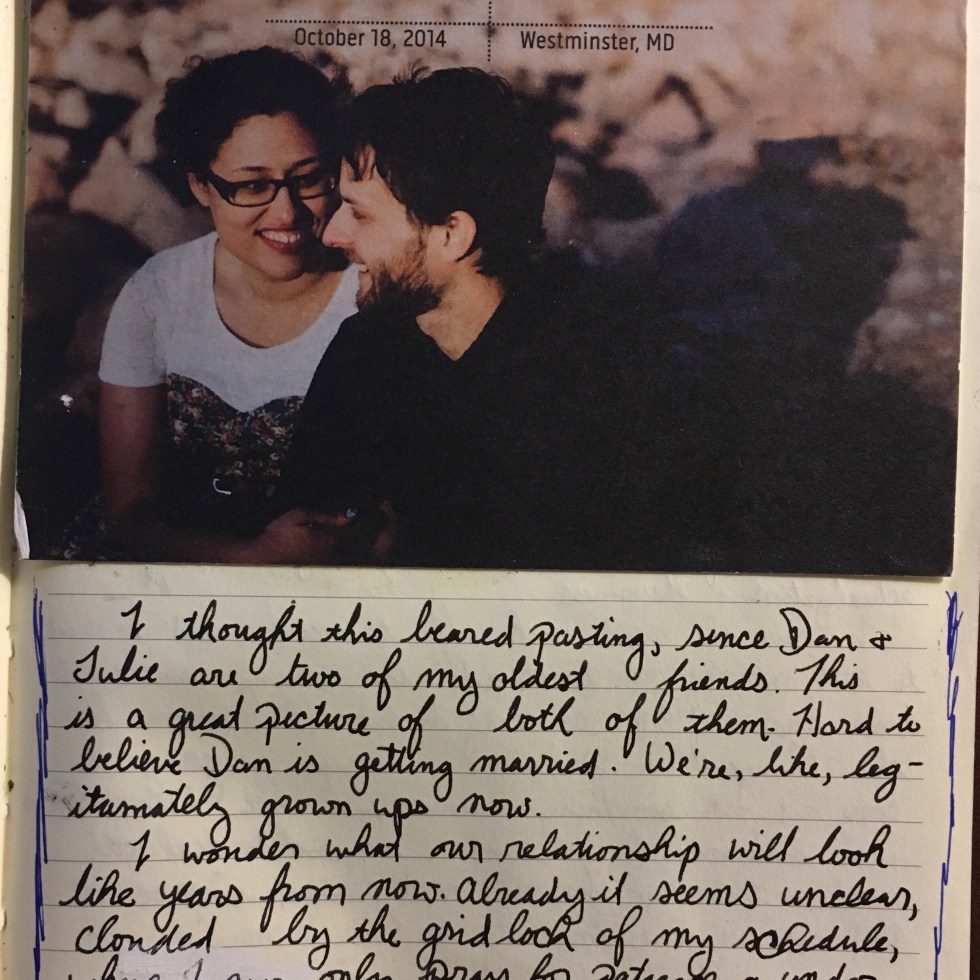 October 18, 2014 Westminster, MD
I thought this beared pasting, since Dan &
Julie are two of my oldest friends. This
is a great picture of both of them. Hard to
believe Dan is getting married. We're, like, leg-
itamately grown ups now.
I wonder what our relationship will look
like years from now. Already it seems unclear,
clouded by the gridlock of my schedule,
only